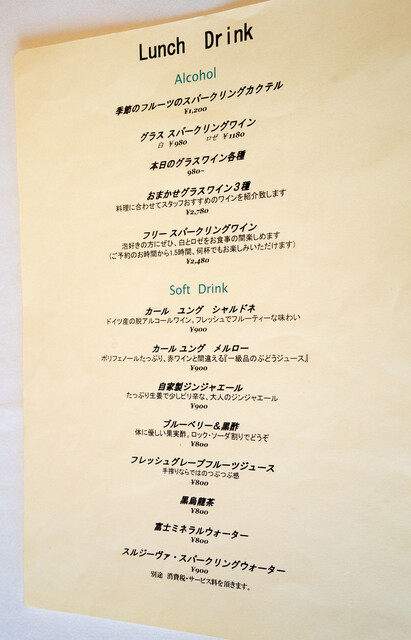 Lunch Drink
Alcohol
季節のフルーツのスパークリングカクテル
¥1,200
グラス スパークリングワイン
白 ¥980 ロゼ ¥1180
本日のグラスワイン各種
980~
おまかせグラスワイン３種
料理に合わせてスタッフおすすめのワインを紹介致します
¥2,780
フリー スパークリングワイン
泡好きの方にぜひ、白とロゼをお食事の間楽しめます
(ご予約のお時間から1.5時間、何杯でもお楽しみいただけます)
¥2,480
Soft Drink
カール ユング シャルドネ
ドイツ産の脱アルコールワイン。フレッシュでフルーティーな味わい
¥900
カール ユング メルロー
ポリフェノールたっぷり、赤ワインと間違える『一級品のぶどうジュース』
¥900
自家製ジンジャエール
たっぷり生姜で少しピリ辛な、大人のジンジャエール
¥900
ブルーベリー＆黒酢
体に優しい果実酢。ロック・ソーダ割りでどうぞ
¥800
フレッシュグレープフルーツジュース
手搾りならではのつぶつぶ感
¥800
黒烏龍茶
¥800
富士ミネラルウォーター
¥800
スルジーヴァ・スパークリングウォーター
¥900
別途 消費税・サービス料を頂きます。